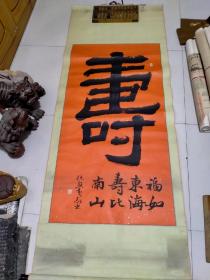 壽
福如
東海
壽比
南山